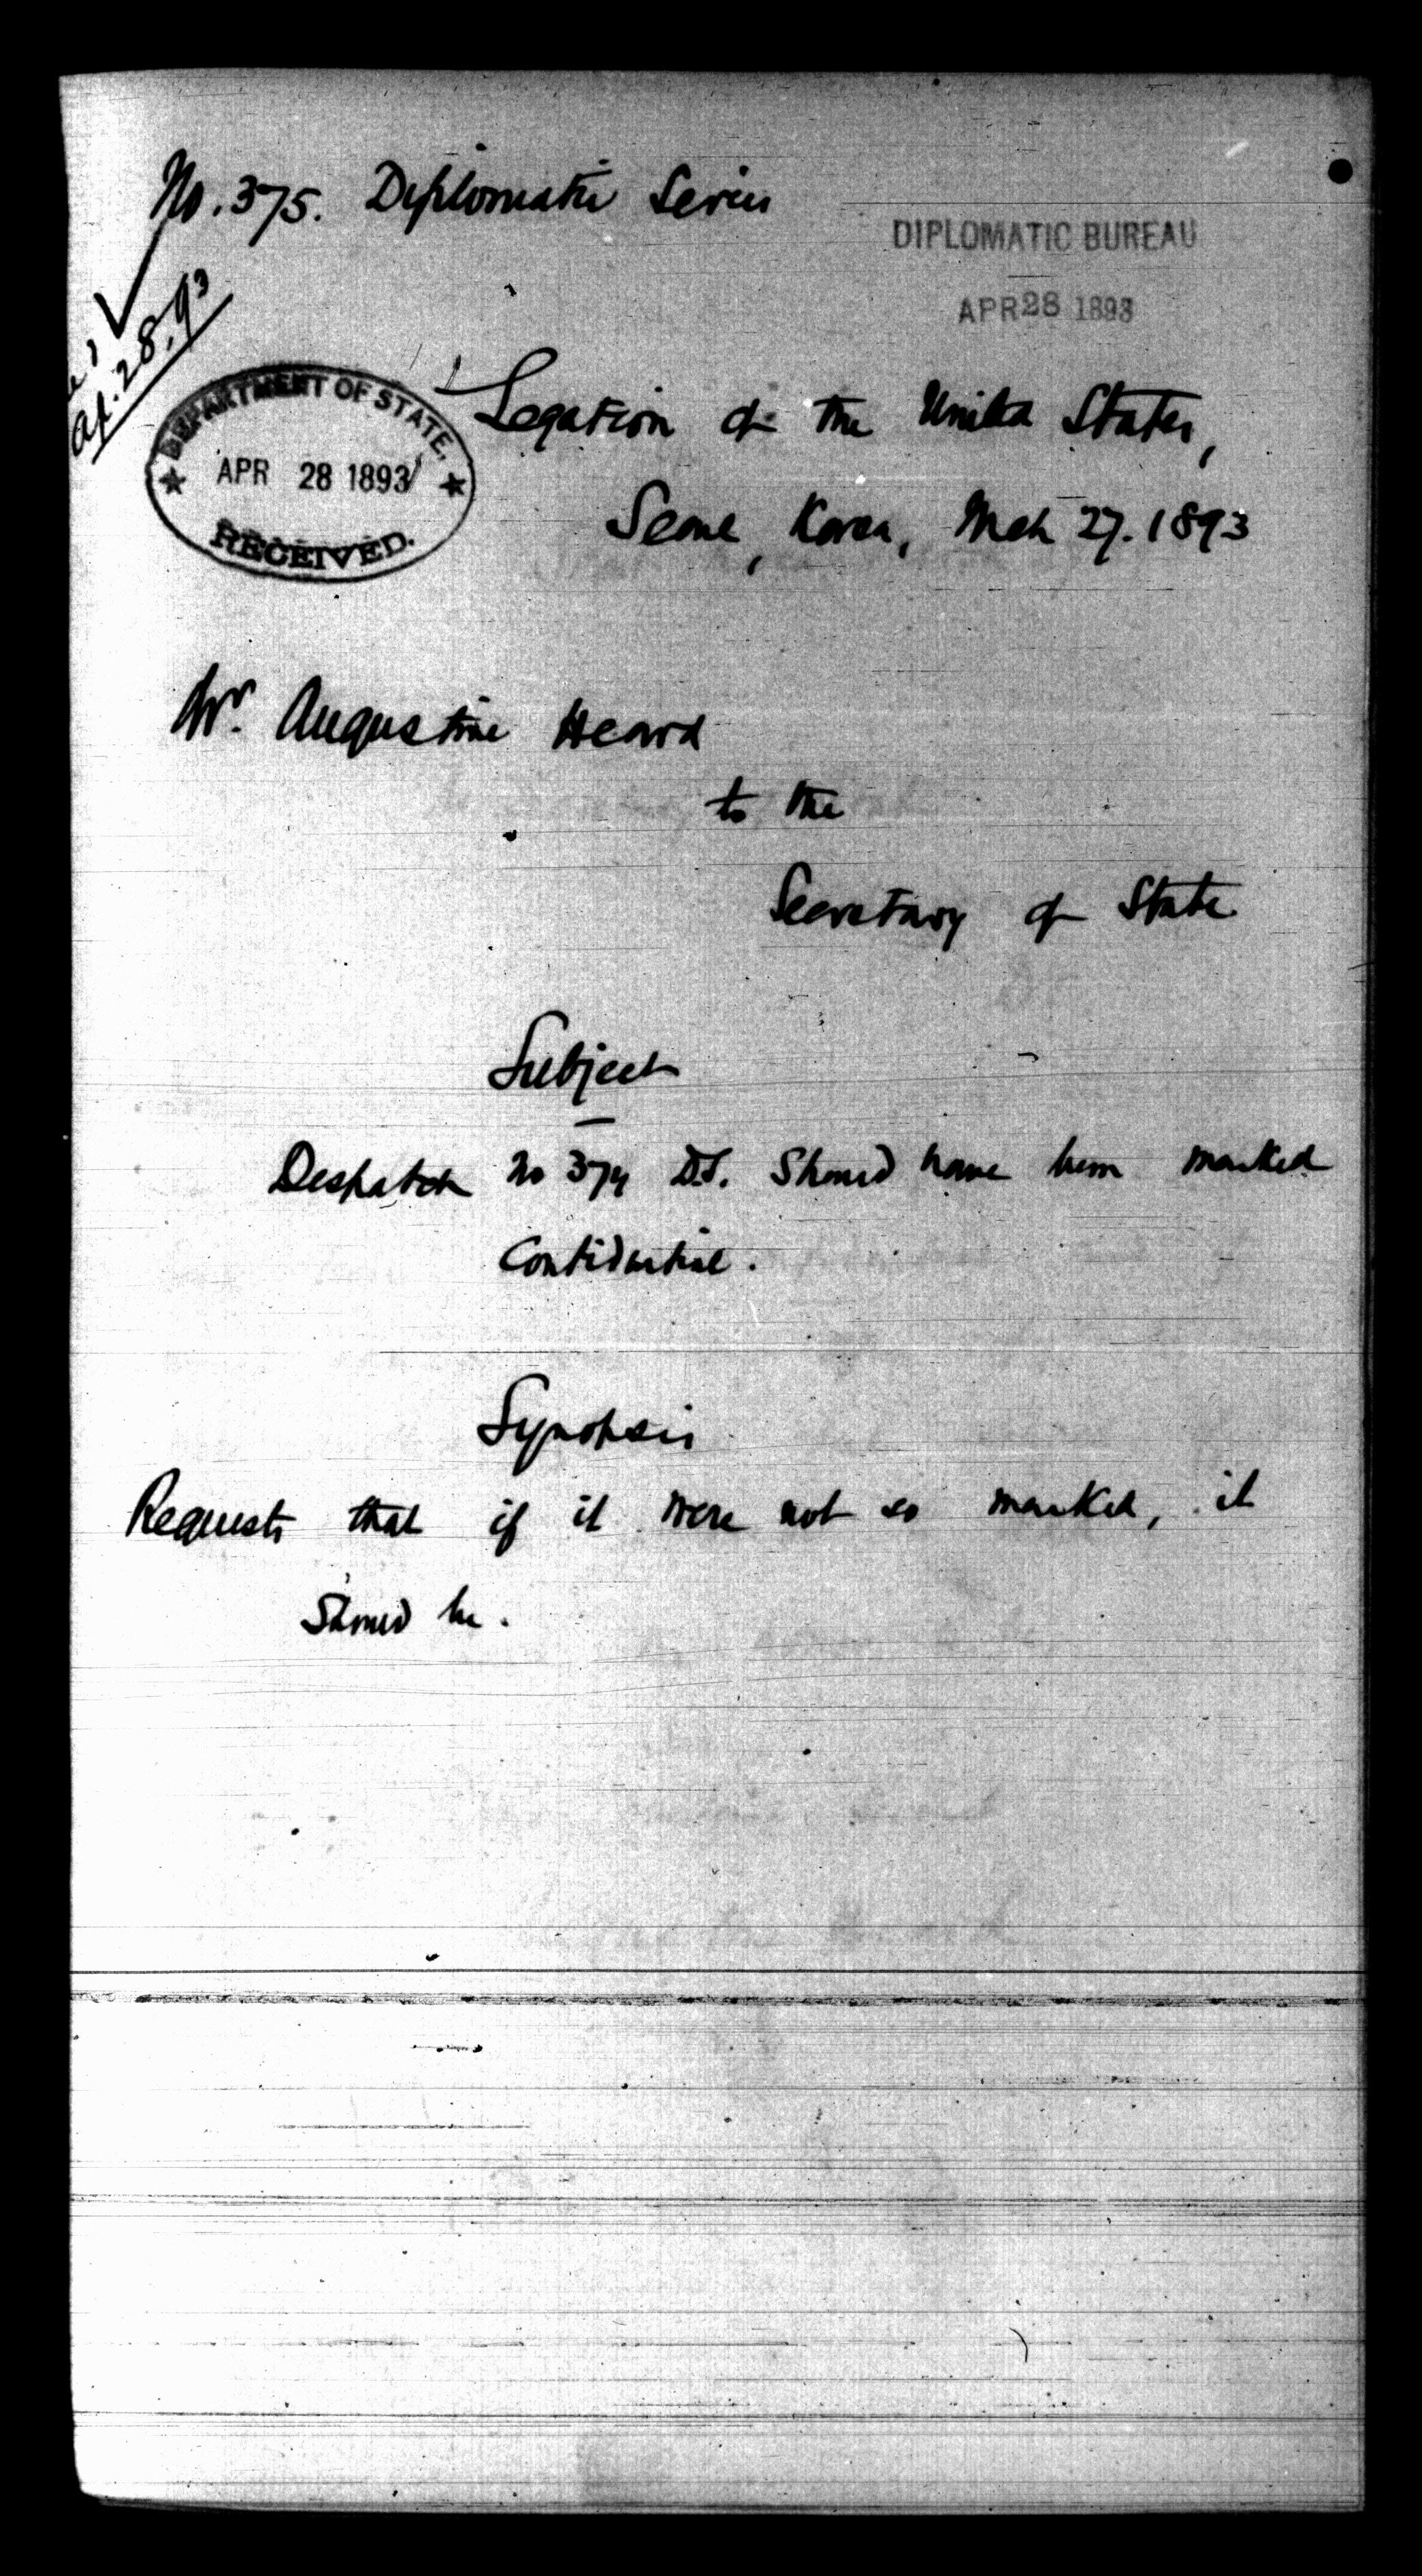 No. 375. Diplomatic Series
DIPLOMATIC BUREAU
APR 28 1893
Ap. 28, 93
DEPARTMENT OF STATE.
APR 28 1893
RECEIVED.
Legation of the United States,
Seoul, Korea, Mch 27. 1893
Mr. Augustine Heard
to the
Secretary of State
Subject
Despatch No 374 D.S. Should have been marked
Confidential.
Synopsis
Requests that if it were not so marked, it
Should be.